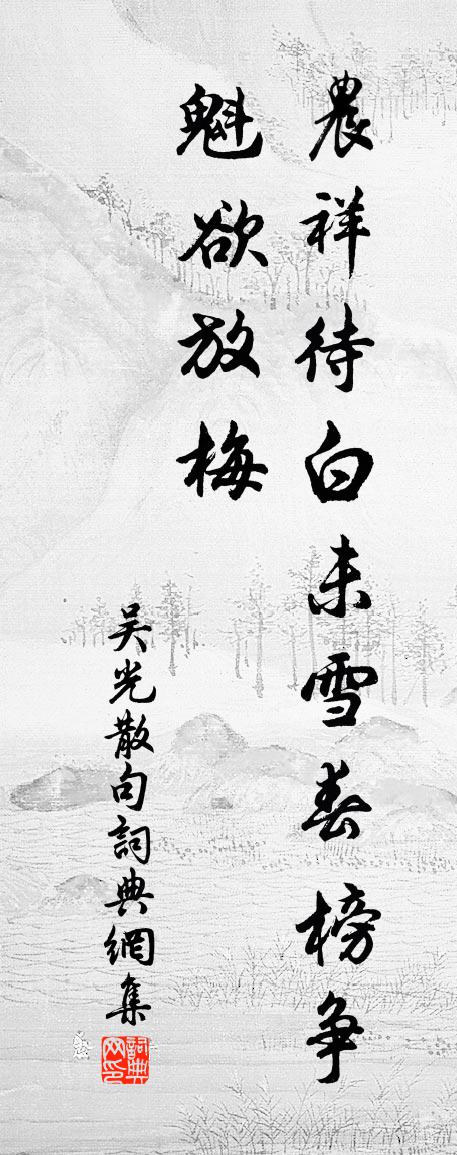 農祥待白未雪春榜争
魁欲放梅
吴光散句詞典網集
詞典网印